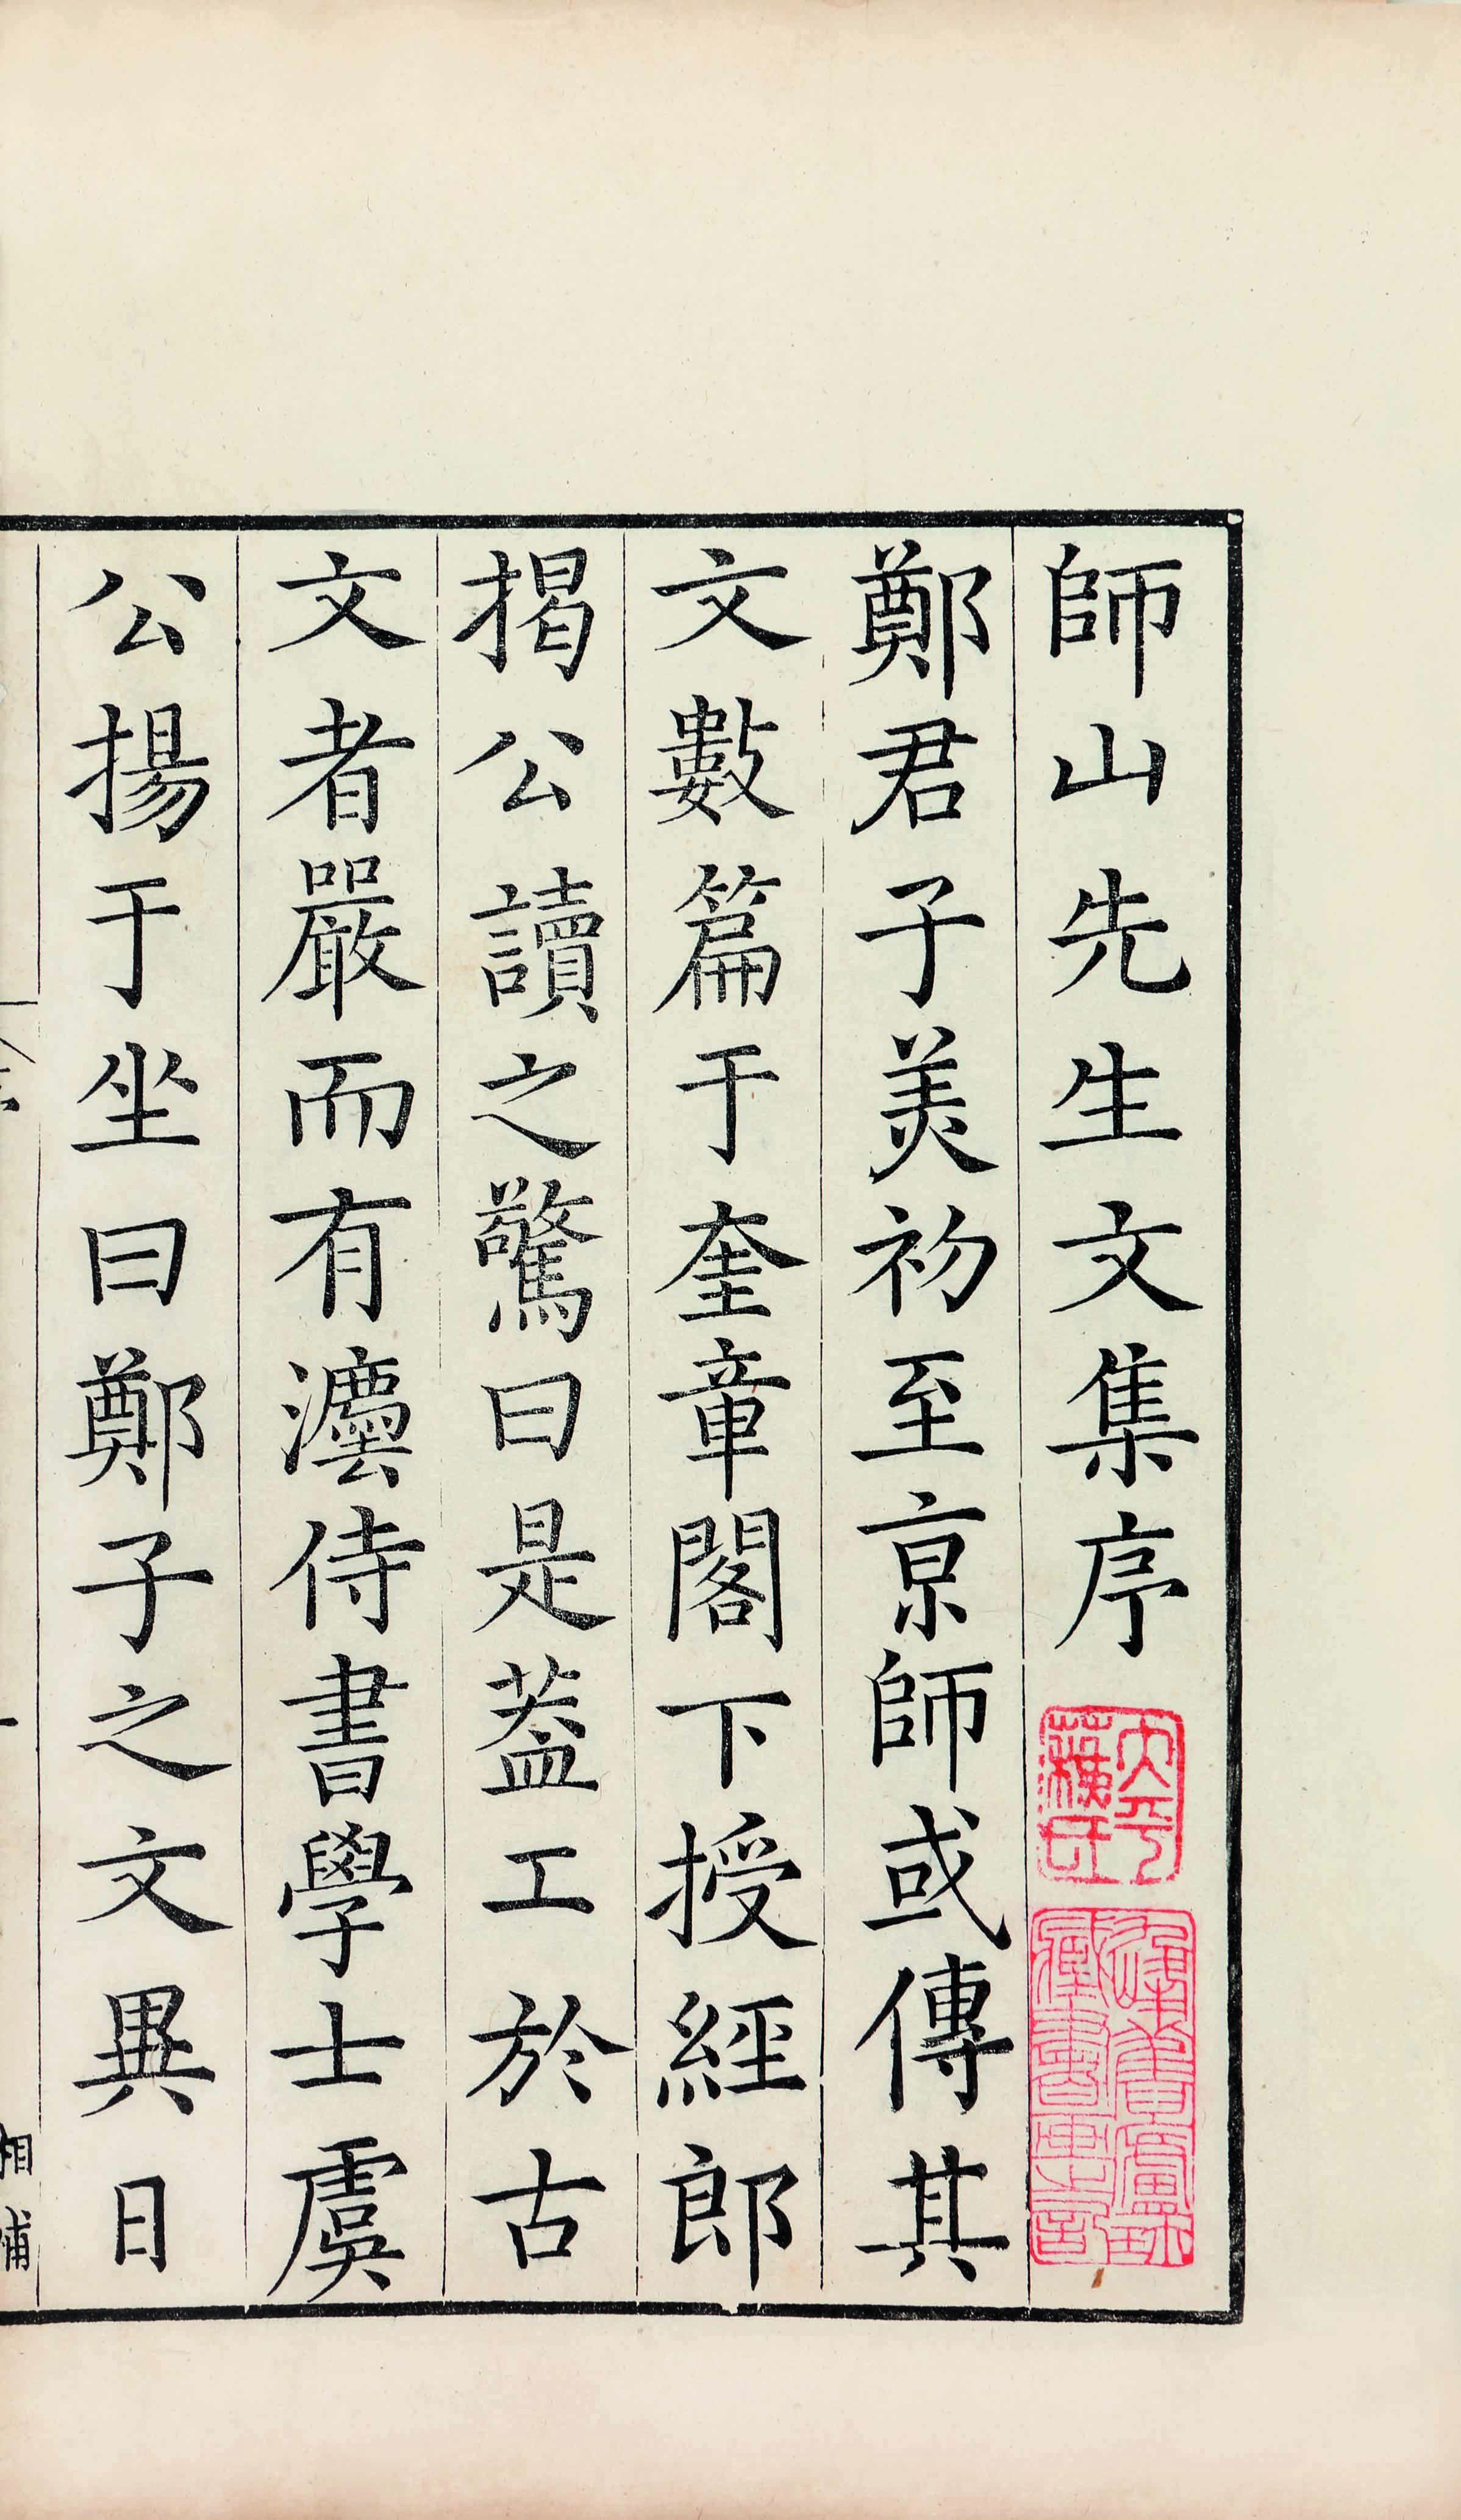 師山先生文集序
鄭君子美初至京師或傳其
文數篇于奎章閣下授經郎
揭公讀之驚曰是蓋工於古
文者嚴而有灋侍書學士虞
公揚于坐曰鄭子之文異日